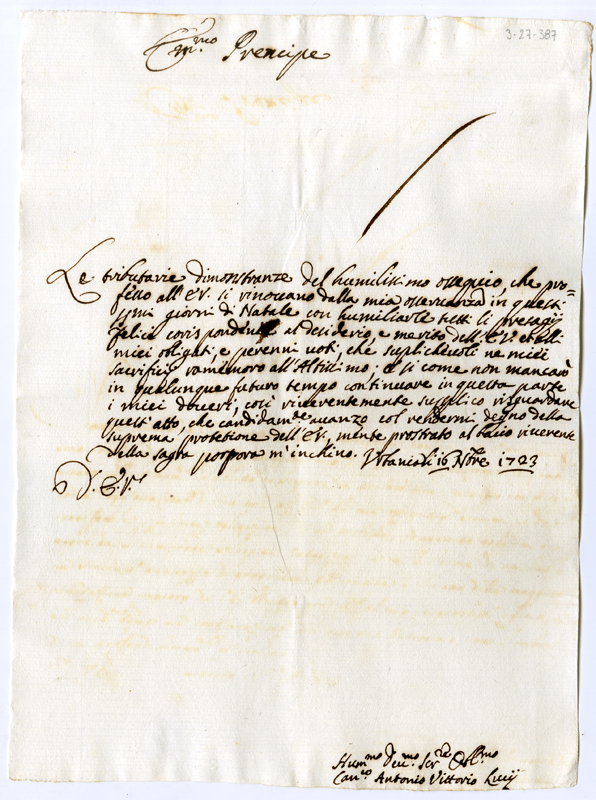 3-27-387
Em.mo Prencipe
Le tributarie dimostranze del humilissimo ossequio, che pro=
fesso all'E.V. si rinouano dalla mia osseruanza in questi
ssmi giorni di Natale con humiliarle tutti li presagij
felici corispondenti al desiderio, e merito dell'E.V. et alli
miei oblighi, e perenni uoti, che suplicheuoli ne miei
sacrificij ramemoro all'Altissimo; e si come non mancarò
in qualunque futuro tempo continuare in questa parte
i miei doueri, così riuerentemente supplico risguardare
quest'atto, che candidam.te auanzo col rendermi degno della
suprema protetione dell'E.V., mentre prostrato al bacio riuerente
della sagra porpora m'inchino. 16 N.bre 1723
D. E. V.
Hum.mo Deu.mo Ser.re Obl.mo
Can.co Antonio Vittorio Lucij